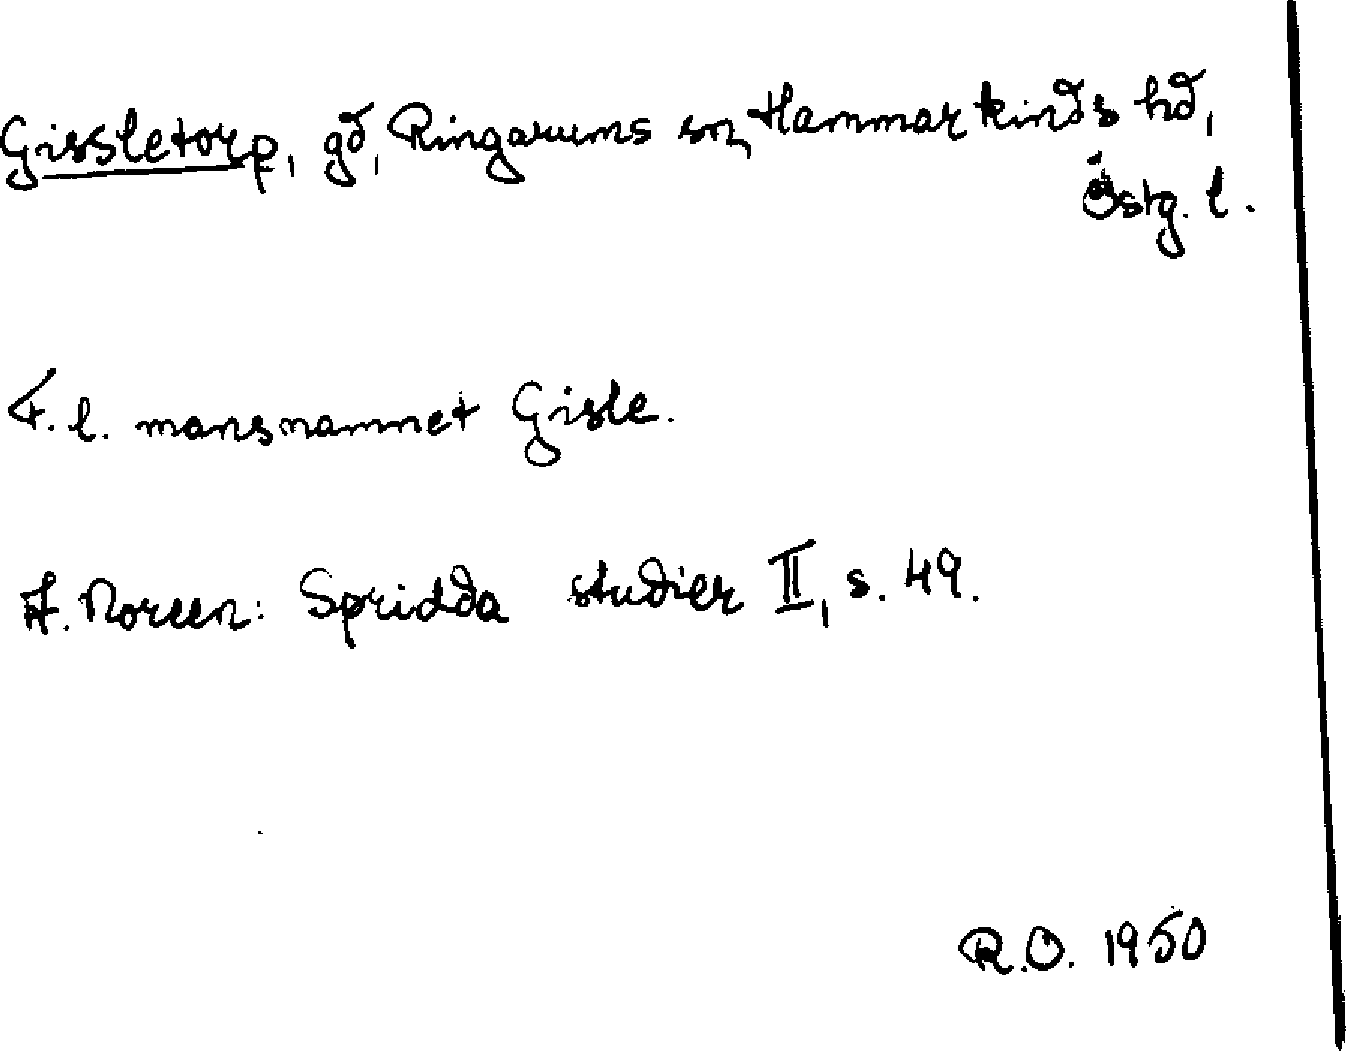 Gissletorp, gd, Ringarums sn, Hammarkinds hd,
Östg. l.
F. l. mansnamnet Gisle.
A. Noreen: Spridda studier II, s. 49.
R.O. 1950